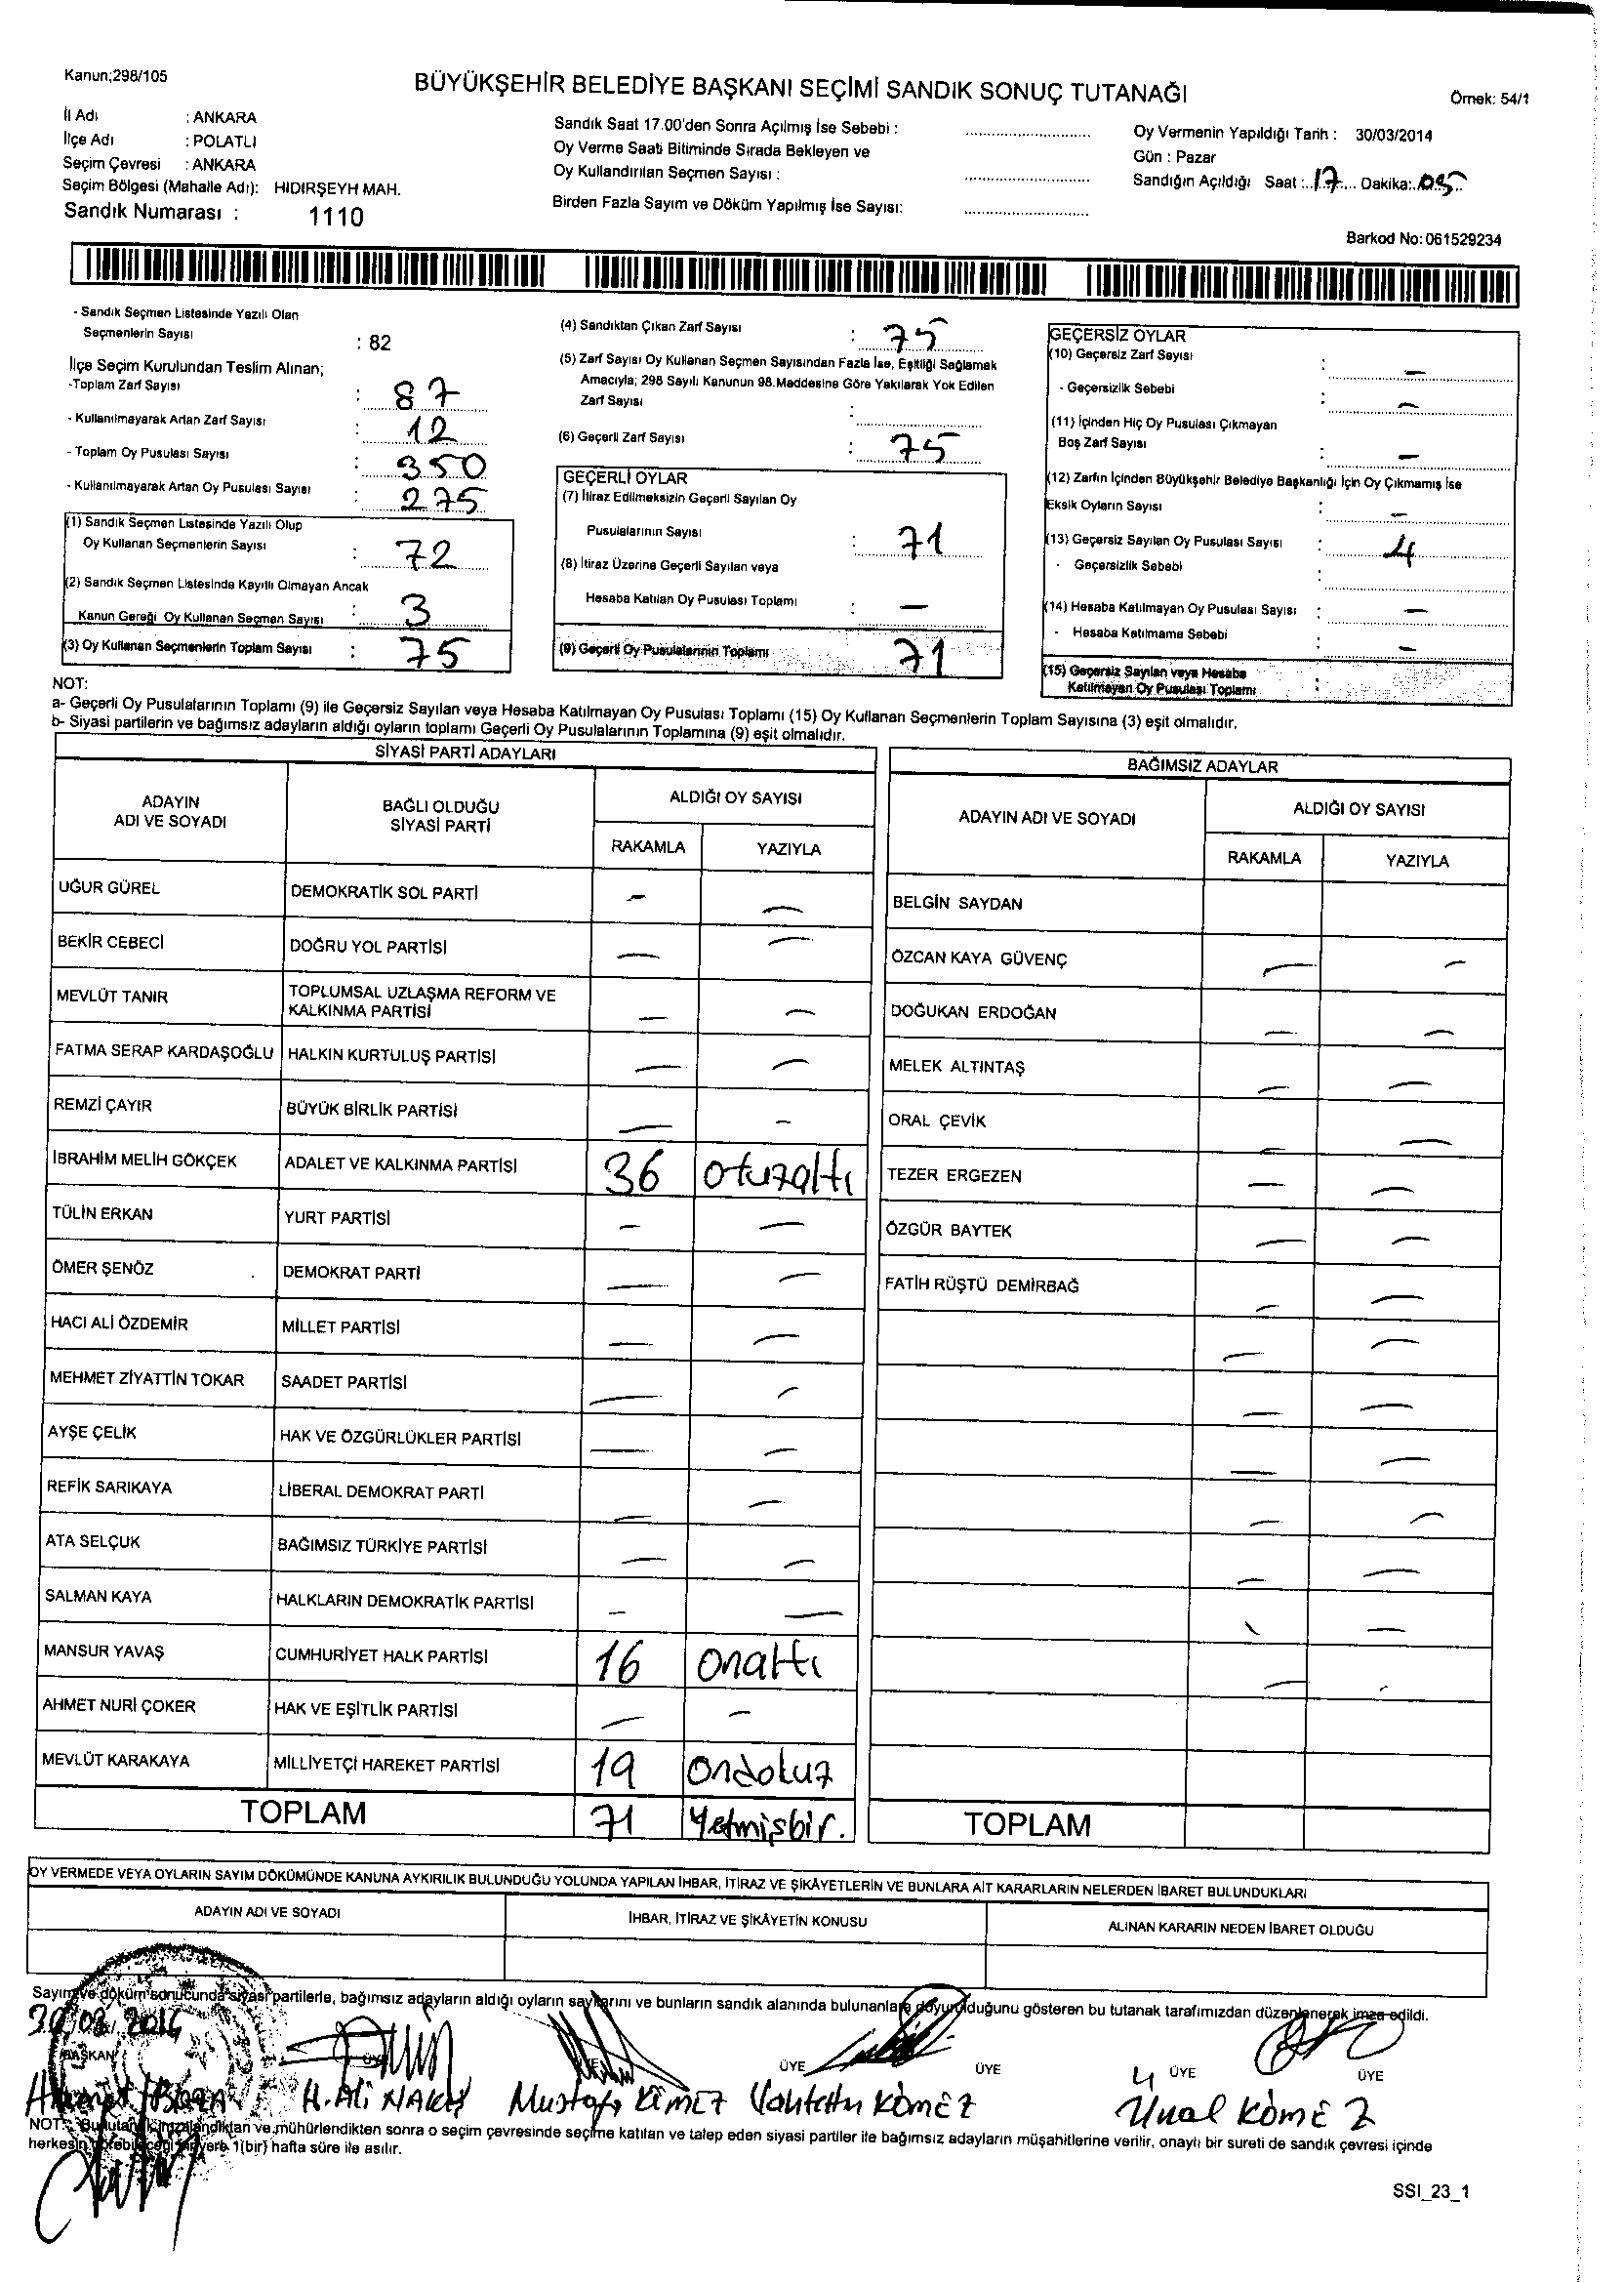 Kanun;298/105
BÜYÜKŞEHİR BELEDİYE BAŞKANI SEÇİMİ SANDIK SONUÇ TUTANAĞI
Örnek: 54/1
İl Adı : ANKARA
İlçe Adı : POLATLI
Seçim Çevresi : ANKARA
Seçim Bölgesi (Mahalle Adı): HIDIRŞEYH MAH.
Sandık Numarası : 1110
Sandık Saat 17.00'den Sonra Açılmış İse Sebebi :
Oy Verme Saati Bitiminde Sırada Bekleyen ve
Oy Kullandırılan Seçmen Sayısı :
Birden Fazla Sayım ve Döküm Yapılmış İse Sayısı:
Oy Vermenin Yapıldığı Tarih : 30/03/2014
Gün : Pazar
Sandığın Açıldığı Saat : 17 Dakika: 05
Barkod No: 061529234
- Sandık Seçmen Listesinde Yazılı Olan
Seçmenlerin Sayısı : 82
İlçe Seçim Kurulundan Teslim Alınan;
-Toplam Zarf Sayısı : 87
- Kullanılmayarak Artan Zarf Sayısı : 12
- Toplam Oy Pusulası Sayısı : 350
- Kullanılmayarak Artan Oy Pusulası Sayısı : 275
(1) Sandık Seçmen Listesinde Yazılı Olup
Oy Kullanan Seçmenlerin Sayısı : 72
(2) Sandık Seçmen Listesinde Kayıtlı Olmayan Ancak
Kanun Gereği Oy Kullanan Seçmen Sayısı : 3
(3) Oy Kullanan Seçmenlerin Toplam Sayısı : 75
(4) Sandıktan Çıkan Zarf Sayısı : 75
(5) Zarf Sayısı Oy Kullanan Seçmen Sayısından Fazla İse, Eşitliği Sağlamak
Amacıyla; 298 Sayılı Kanunun 98.Maddesine Göre Yakılarak Yok Edilen
Zarf Sayısı :
(6) Geçerli Zarf Sayısı : 75
GEÇERLİ OYLAR
(7) İtiraz Edilmeksizin Geçerli Sayılan Oy
Pusulalarının Sayısı : 71
(8) İtiraz Üzerine Geçerli Sayılan veya
Hesaba Katılan Oy Pusulası Toplamı : —
(9) Geçerli Oy Pusulalarının Toplamı 71
GEÇERSİZ OYLAR
(10) Geçersiz Zarf Sayısı : —
- Geçersizlik Sebebi : —
(11) İçinden Hiç Oy Pusulası Çıkmayan
Boş Zarf Sayısı : —
(12) Zarfın İçinden Büyükşehir Belediye Başkanlığı İçin Oy Çıkmamış İse
Eksik Oyların Sayısı : —
(13) Geçersiz Sayılan Oy Pusulası Sayısı : 4
- Geçersizlik Sebebi :
(14) Hesaba Katılmayan Oy Pusulası Sayısı : —
- Hesaba Katılmama Sebebi : —
(15) Geçersiz Sayılan veya Hesaba
Katılmayan Oy Pusulası Toplamı :
NOT:
a- Geçerli Oy Pusulalarının Toplamı (9) ile Geçersiz Sayılan veya Hesaba Katılmayan Oy Pusulası Toplamı (15) Oy Kullanan Seçmenlerin Toplam Sayısına (3) eşit olmalıdır.
b- Siyasi partilerin ve bağımsız adayların aldığı oyların toplamı Geçerli Oy Pusulalarının Toplamına (9) eşit olmalıdır.
SİYASİ PARTİ ADAYLARI
ADAYIN ADI VE SOYADI
BAĞLI OLDUĞU SİYASİ PARTİ
ALDIĞI OY SAYISI
RAKAMLA YAZIYLA
UĞUR GÜREL DEMOKRATİK SOL PARTİ — —
BEKİR CEBECİ DOĞRU YOL PARTİSİ — —
MEVLÜT TANIR TOPLUMSAL UZLAŞMA REFORM VE KALKINMA PARTİSİ — —
FATMA SERAP KARDAŞOĞLU HALKIN KURTULUŞ PARTİSİ — —
REMZİ ÇAYIR BÜYÜK BİRLİK PARTİSİ — —
İBRAHİM MELİH GÖKÇEK ADALET VE KALKINMA PARTİSİ 36 otuzaltı
TÜLİN ERKAN YURT PARTİSİ — —
ÖMER ŞENÖZ DEMOKRAT PARTİ — —
HACI ALİ ÖZDEMİR MİLLET PARTİSİ — —
MEHMET ZİYATTİN TOKAR SAADET PARTİSİ — —
AYŞE ÇELİK HAK VE ÖZGÜRLÜKLER PARTİSİ — —
REFİK SARIKAYA LİBERAL DEMOKRAT PARTİ — —
ATA SELÇUK BAĞIMSIZ TÜRKİYE PARTİSİ — —
SALMAN KAYA HALKLARIN DEMOKRATİK PARTİSİ — —
MANSUR YAVAŞ CUMHURİYET HALK PARTİSİ 16 onaltı
AHMET NURİ ÇOKER HAK VE EŞİTLİK PARTİSİ — —
MEVLÜT KARAKAYA MİLLİYETÇİ HAREKET PARTİSİ 19 ondokuz
TOPLAM 71 Yetmişbir.
BAĞIMSIZ ADAYLAR
ADAYIN ADI VE SOYADI
ALDIĞI OY SAYISI
RAKAMLA YAZIYLA
BELGİN SAYDAN
ÖZCAN KAYA GÜVENÇ — —
DOĞUKAN ERDOĞAN — —
MELEK ALTINTAŞ — —
ORAL ÇEVİK — —
TEZER ERGEZEN — —
ÖZGÜR BAYTEK — —
FATİH RÜŞTÜ DEMİRBAĞ — —
TOPLAM
OY VERMEDE VEYA OYLARIN SAYIM DÖKÜMÜNDE KANUNA AYKIRILIK BULUNDUĞU YOLUNDA YAPILAN İHBAR, İTİRAZ VE ŞİKÂYETLERİN VE BUNLARA AİT KARARLARIN NELERDEN İBARET BULUNDUKLARI
ADAYIN ADI VE SOYADI
İHBAR, İTİRAZ VE ŞİKÂYETİN KONUSU
ALINAN KARARIN NEDEN İBARET OLDUĞU
Sayım ve döküm sonucunda siyasi partilerle, bağımsız adayların aldığı oyların sayılarını ve bunların sandık alanında bulunanlara duyurulduğunu gösteren bu tutanak tarafımızdan düzenlenerek imza edildi.
30/03/2014
BAŞKAN ÜYE ÜYE ÜYE ÜYE ÜYE
H. Ali Mustafa KÖMEZ KÖMEZ Ünal KÖMEZ
NOT: Bu tutanak imzalandıktan ve mühürlendikten sonra o seçim çevresinde seçime katılan ve talep eden siyasi partiler ile bağımsız adayların müşahitlerine verilir, onaylı bir sureti de sandık çevresi içinde
herkesin görebileceği bir yere 1(bir) hafta süre ile asılır.
SSI_23_1